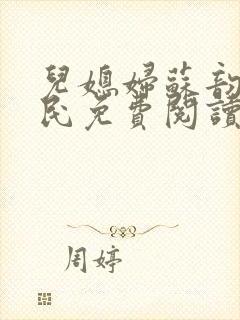 兒媳婦蘇韵
民免費閱讀
周婷